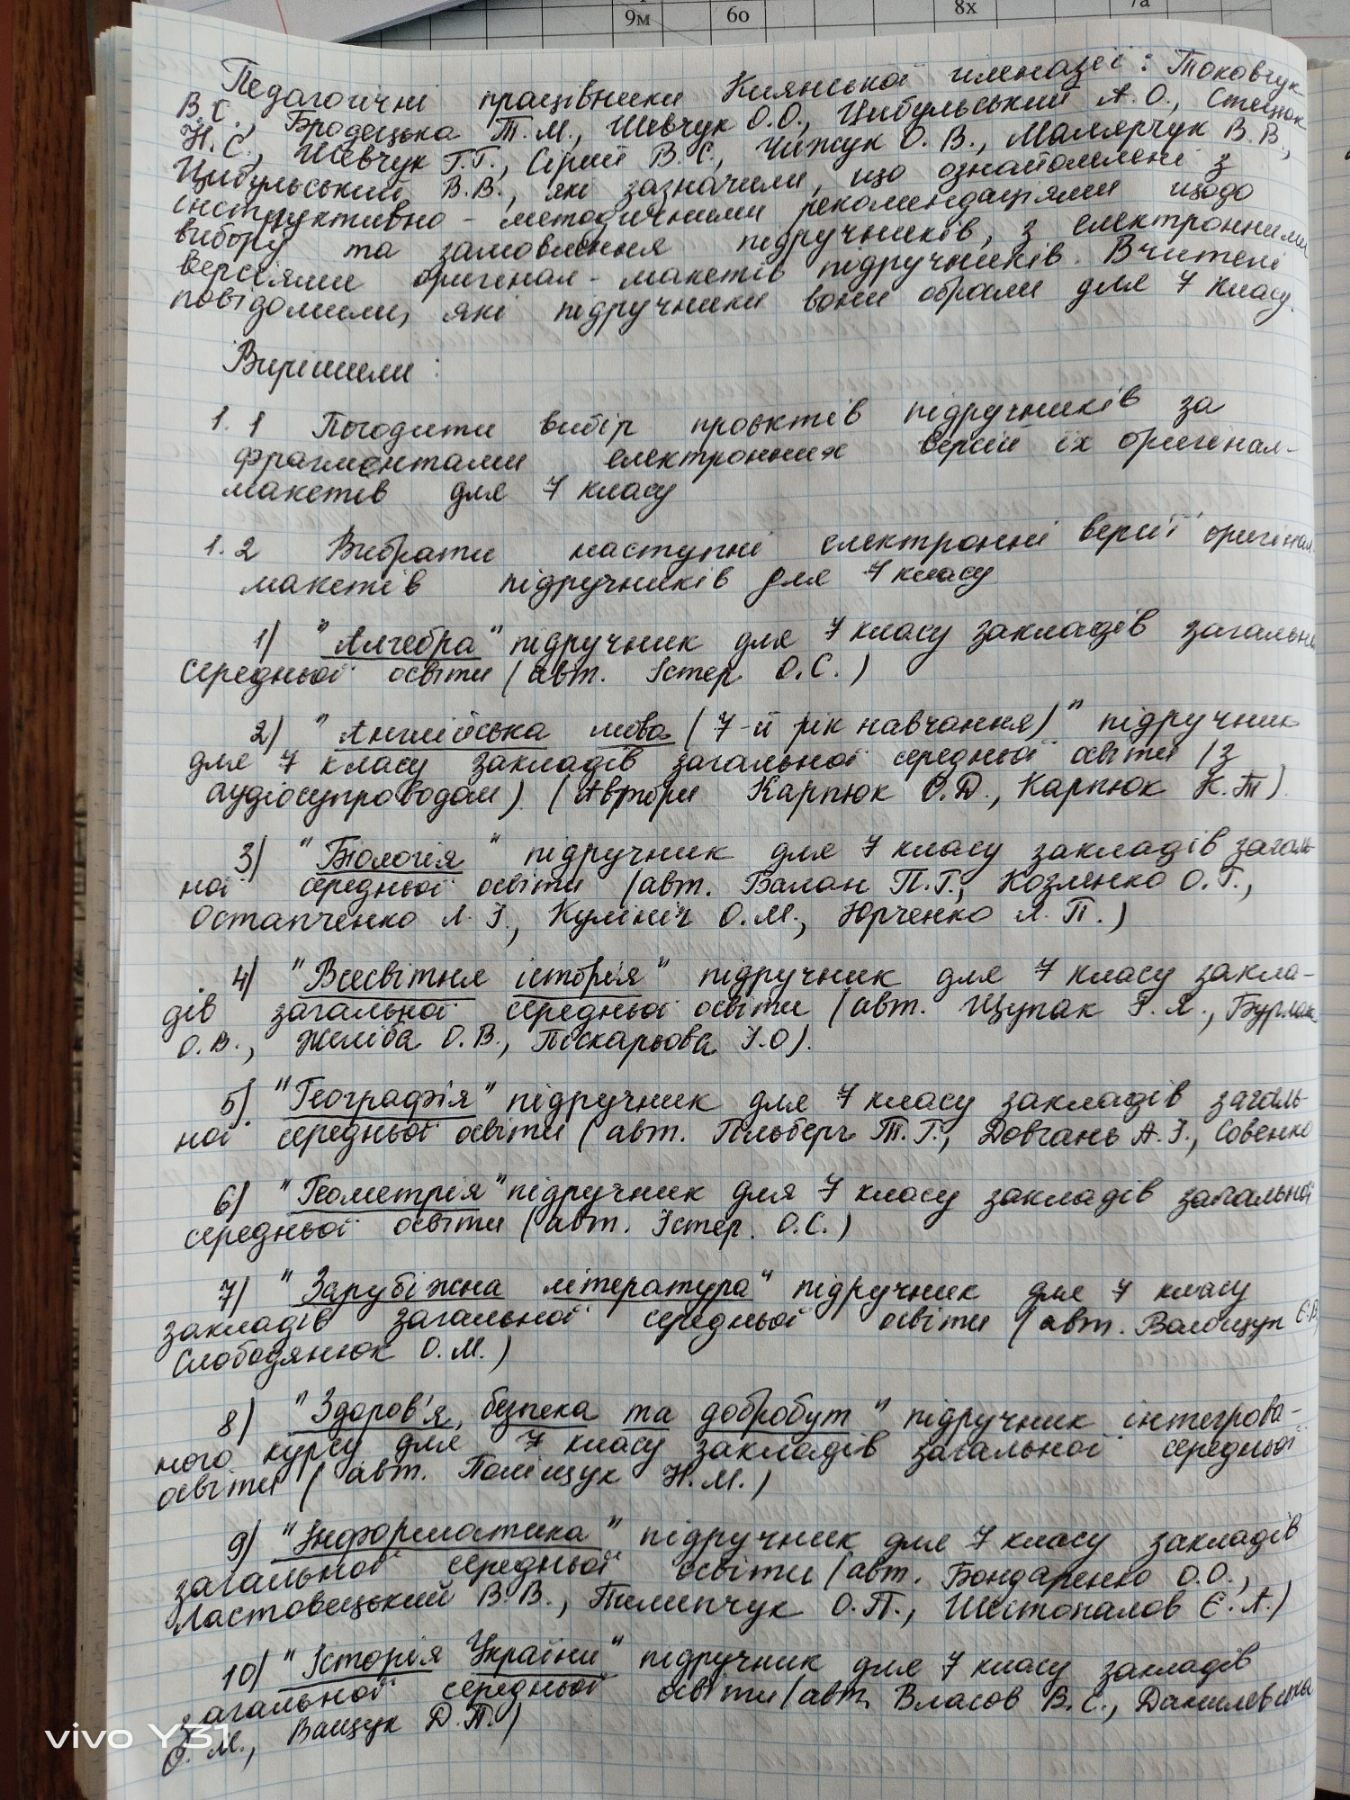 9м 6о 8х 7а
Педагогічні працівники Киянської гімназії: Токовчук
В.С., Бродецька Т.М., Шевчук О.О., Цибульський А.О., Стецюк
Н.С., Шевчук Г.Г., Сірий В.С., Чижук О.В., Малярчук В.В.,
Цибульський В.В., які зазначили, що ознайомлені з
інструктивно-методичними рекомендаціями щодо
вибору та замовлення підручників, з електронними
версіями оригінал-макетів підручників. Вчителі
повідомили, які підручники вони обрали для 7 класу.
Вирішили:
1.1 Погодити вибір проєктів підручників за
фрагментами електронних версій їх оригінал-
макетів для 7 класу
1.2 Вибрати наступні електронні версії оригінал-
макетів підручників для 7 класу
1) "Алгебра" підручник для 7 класу закладів загальн
середньої освіти (авт. Істер О.С.)
2) "Англійська мова (7-й рік навчання)" підручник
для 7 класу закладів загальної середньої освіти (з
аудіосупроводом). (Автори Карпюк О.Д., Карпюк К.Т)
3) "Біологія" підручник для 7 класу закладів загаль-
ної середньої освіти (авт. Балан П.Г., Козленко О.Г.,
Остапченко Л.І., Кулініч О.М., Юрченко Л.П.)
4) "Всесвітня історія" підручник для 7 класу закла-
дів загальної середньої освіти (авт. Щупак І.Я., Бурлака
О.В., Желіба О.В., Піскарьова І.О).
5) "Географія" підручник для 7 класу закладів загаль-
ної середньої освіти (авт. Гільберг Т.Г., Довгань А.І., Совенко
6) "Геометрія" підручник для 7 класу закладів загальної
середньої освіти (авт. Істер. О.С.)
7) "Зарубіжна література" підручник для 7 класу
закладів загальної середньої освіти (авт. Волощук Є.В
Слободянюк О.М.)
8) "Здоров'я, безпека та добробут" підручник інтегрова-
ного курсу для 7 класу закладів загальної середньої
освіти (авт. Поліщук Н.М.)
9) "Інформатика" підручник для 7 класу закладів
загальної середньої освіти (авт. Бондаренко О.О.,
Ластовецький В.В., Пилипчук О.П., Шестопалов Є.А.)
10) "Історія України" підручник для 7 класу закладів
загальної середньої освіти (авт. Власов В.С., Данилевська
О.М., Ващук Д.П.)
vivo Y31